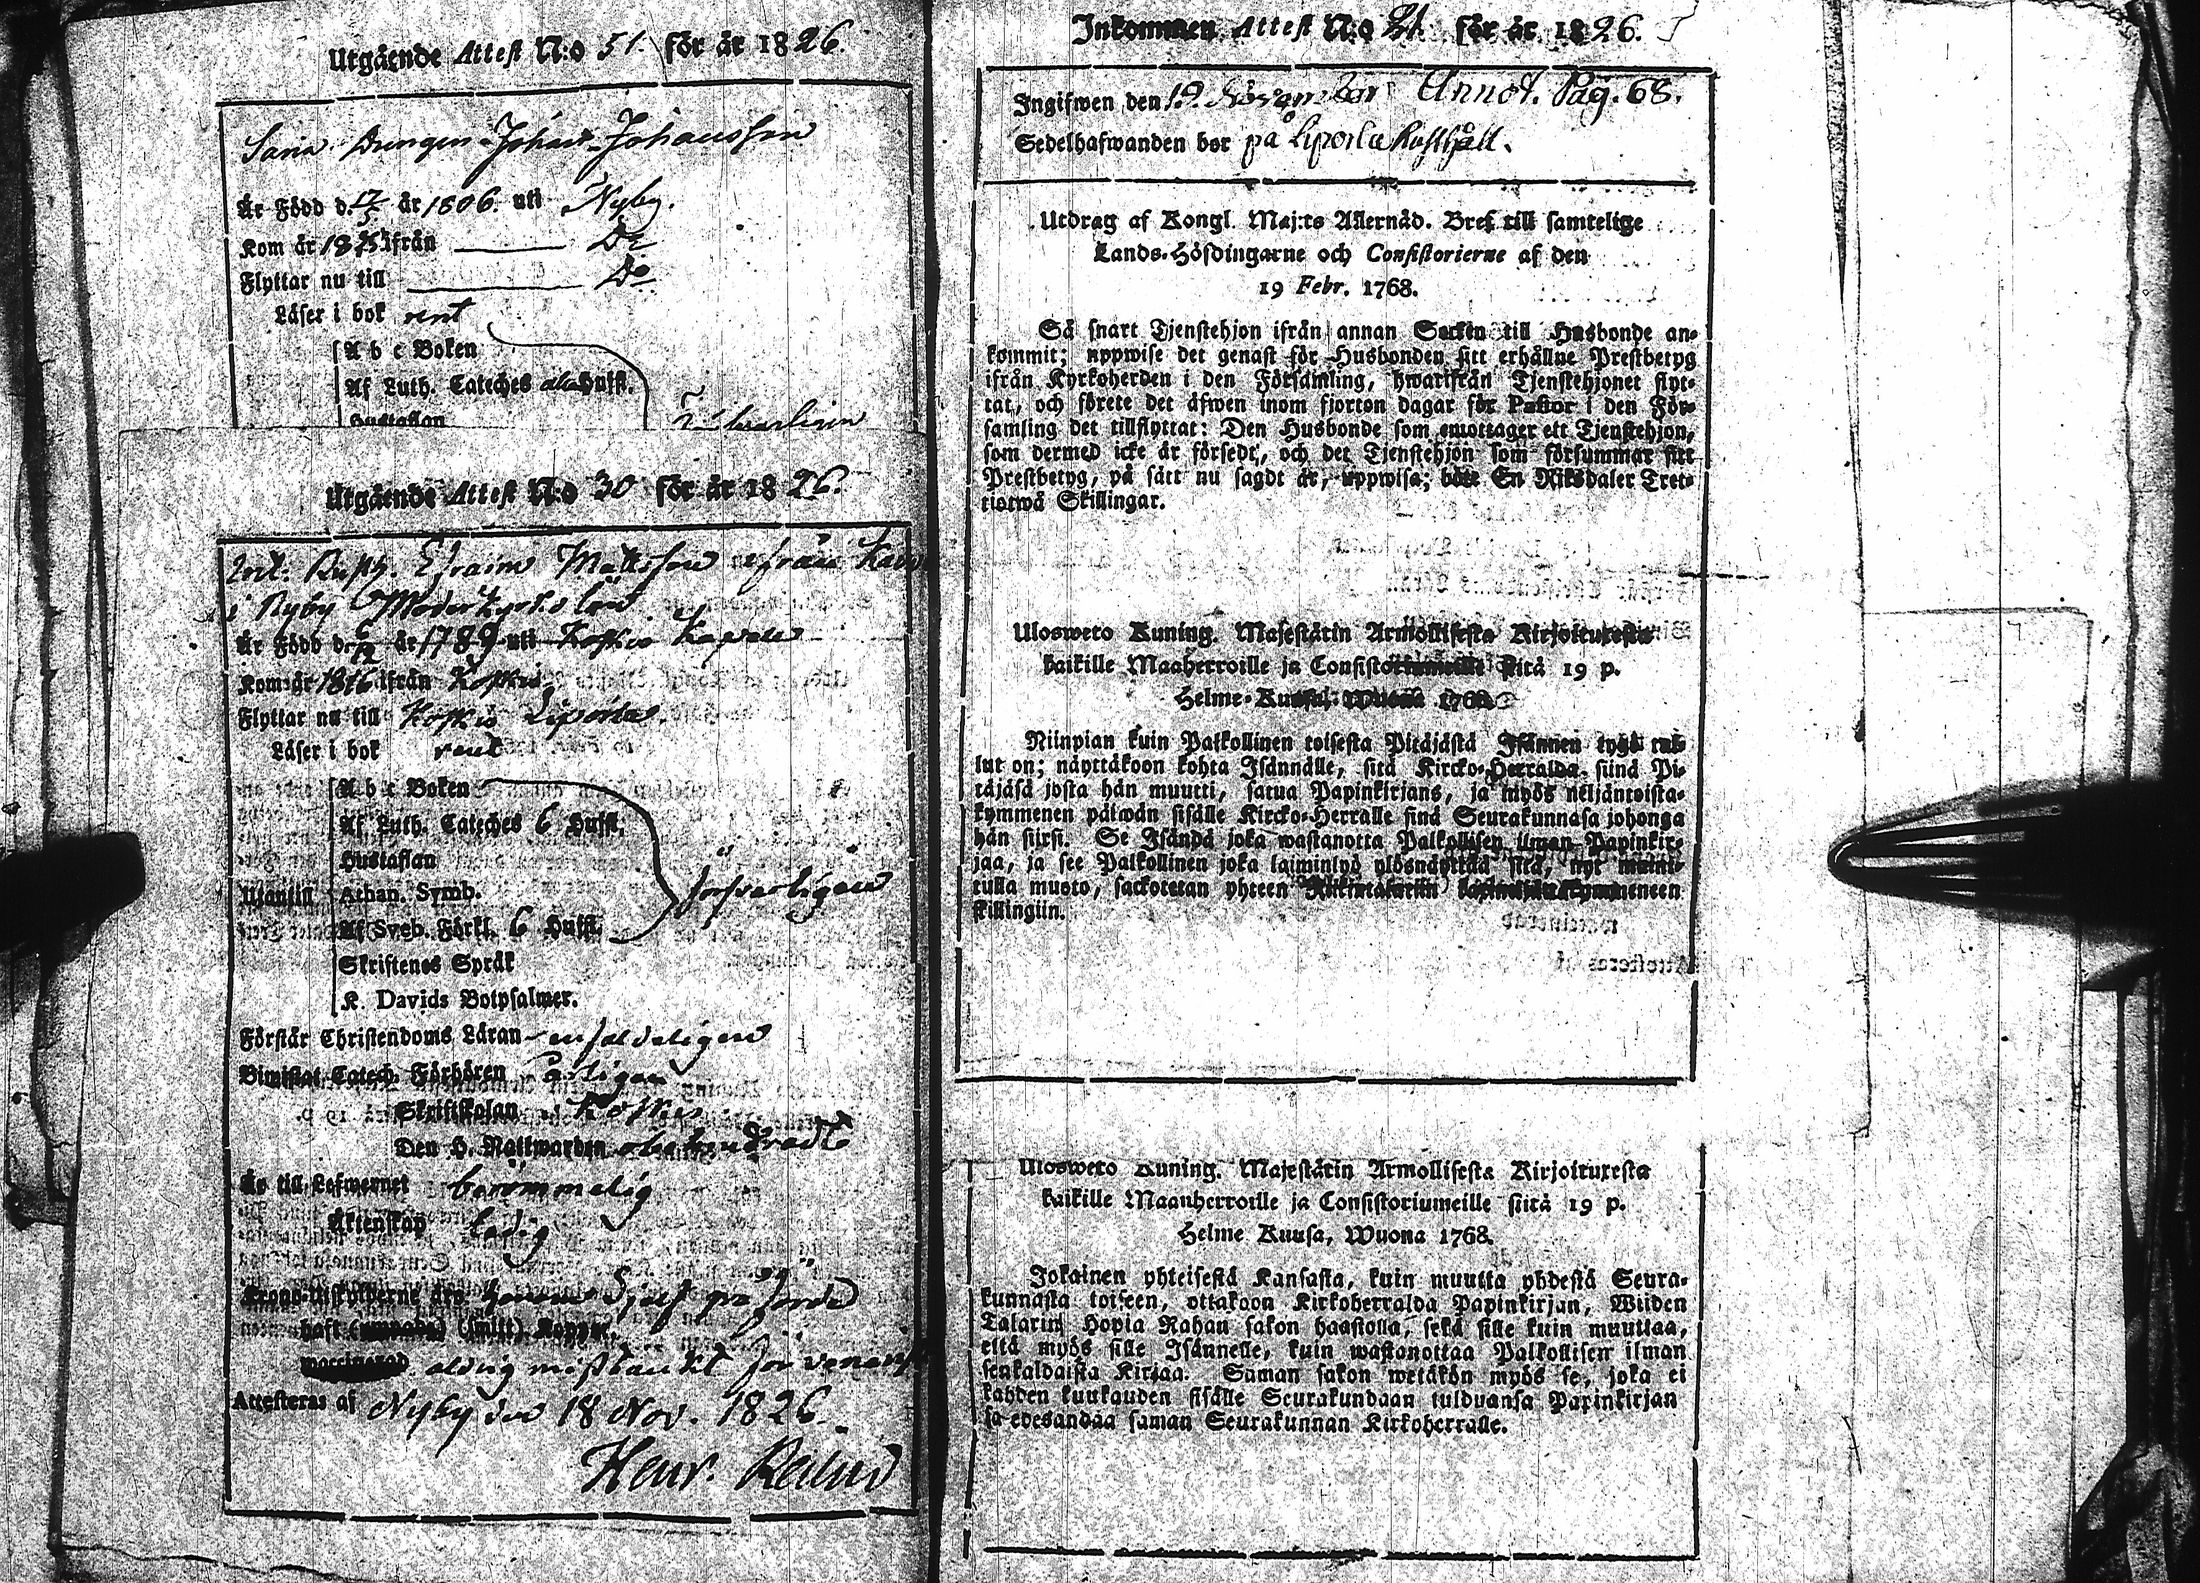 Utgående Attest N:o 51. för år 1826.
Johan Johansson
Är Född d. 17/5 år 1806. uti Nyby.
Kom år 18 ifrån Do
Flyttar nu till Do
Läser i bok rent
A b c Boken
Af Luth. Cateches Hufst.
Hustaflan
Utgående Attest N:o 30 för år 1826.
Rusth. Efraim Mattsson ifrån
i Nyby Moderkyrko
Är Född d. år 1789 uti Koskis Kapell
Kom år 1816 ifrån Koskis
Flyttar nu till Koskis Liporla.
Läser i bok rent
A b c Boken
Af Luth. Cateches 6 Hufst.
Hustaflan
Utantill Athan. Symb.
Af Sveb. Förkl. 6 Hufst. försvarligen
Skriftenes Språk
K. Davids Botpsalmer.
Förstår Christendoms Läran enfaldeligen
Biwistat Catech. Förhören årligen
Skriftskolan i Koskis
Den H. Nattwarden obehindradt
Är till Lefwernet berömmelig
Äktenskap ledig
Krono-Utskylderne äro
haft (smitt) Koppor.
waccinerad aldrig misstänkt för
Attesteras af Nyby den 18 Nov. 1826.
Henr. Relund
Inkommen Attest N:o 21. för år 1826.
Ingifwen den 19 November Annot. Pag. 68.
Sedelhafwanden bor på Liporla Rusthåll.
Utdrag af Kongl. Maj:ts Allernåd. Bref till samtelige
Lands-Höfdingarne och Consistorierne af den
19 Febr. 1768.
Så snart Tjenstehjon ifrån annan Socken till Husbonde an-
kommit; uppwise det genast för Husbonden sitt erhållne Prestbetyg
ifrån Kyrkoherden i den Församling, hwarifrån Tjenstehjonet flyt-
tat, och förete det äfwen inom fjorton dagar för Pastor i den För-
samling det tillflyttat: Den Husbonde som emottager ett Tjenstehjon,
som dermed icke är försedt, och det Tjenstehjon som försummar sitt
Prestbetyg, på sätt nu sagdt är, uppwisa; böte En Riksdaler Tret-
tiotwå Skillingar.
Ulosweto Kuning. Majestätin Armollisesta Kirjoituxesta
kaikille Maaherroille ja Consistoriumeille siitä 19 p.
Helme-Kuusa, Wuona 1768.
Niinpian kuin Palkollinen toisesta Pitäjästä Isännen tygö tul-
lut on; näyttäkoon kohta Isännälle, sitä Kircko-Herralda siinä Pi-
täjäsä josta hän muutti, saatua Papinkirjans, ja myös neljäntoista-
kymmenen päiwän sisälle Kircko-Herralle siinä Seurakunnasa johonga
hän siirsi. Se Isändä joka wastanotta Palkollisen ilman Papinkir-
jaa, ja see Palkollinen joka laiminlyö ylösnäyttää sitä, nyt maini-
tulla muoto, sackotetan yhteen Riikintalariin kymmeneen
skillingiin.
Ulosweto Kuning. Majestätin Armollisesta Kirjoituxesta
kaikille Maanherroille ja Consistoriumeille siitä 19 p.
Helme Kuusa, Wuona 1768.
Jokainen yhteisestä Kansasta, kuin muutta yhdestä Seura-
kunnasta toiseen, ottakoon Kirkoherralda Papinkirjan, Wiiden
Talarin Hopia Rahan sakon haastolla, sekä sille kuin muuttaa,
että myös sille Isännelle, kuin wastanottaa Palkollisen ilman
senkaldaista Kirjaa. Saman sakon wetäkön myös se, joka ei
kahden kuukauden sisälle Seurakundaan tulduansa Papinkirjan
sa edesandaa saman Seurakunnan Kirkoherralle.